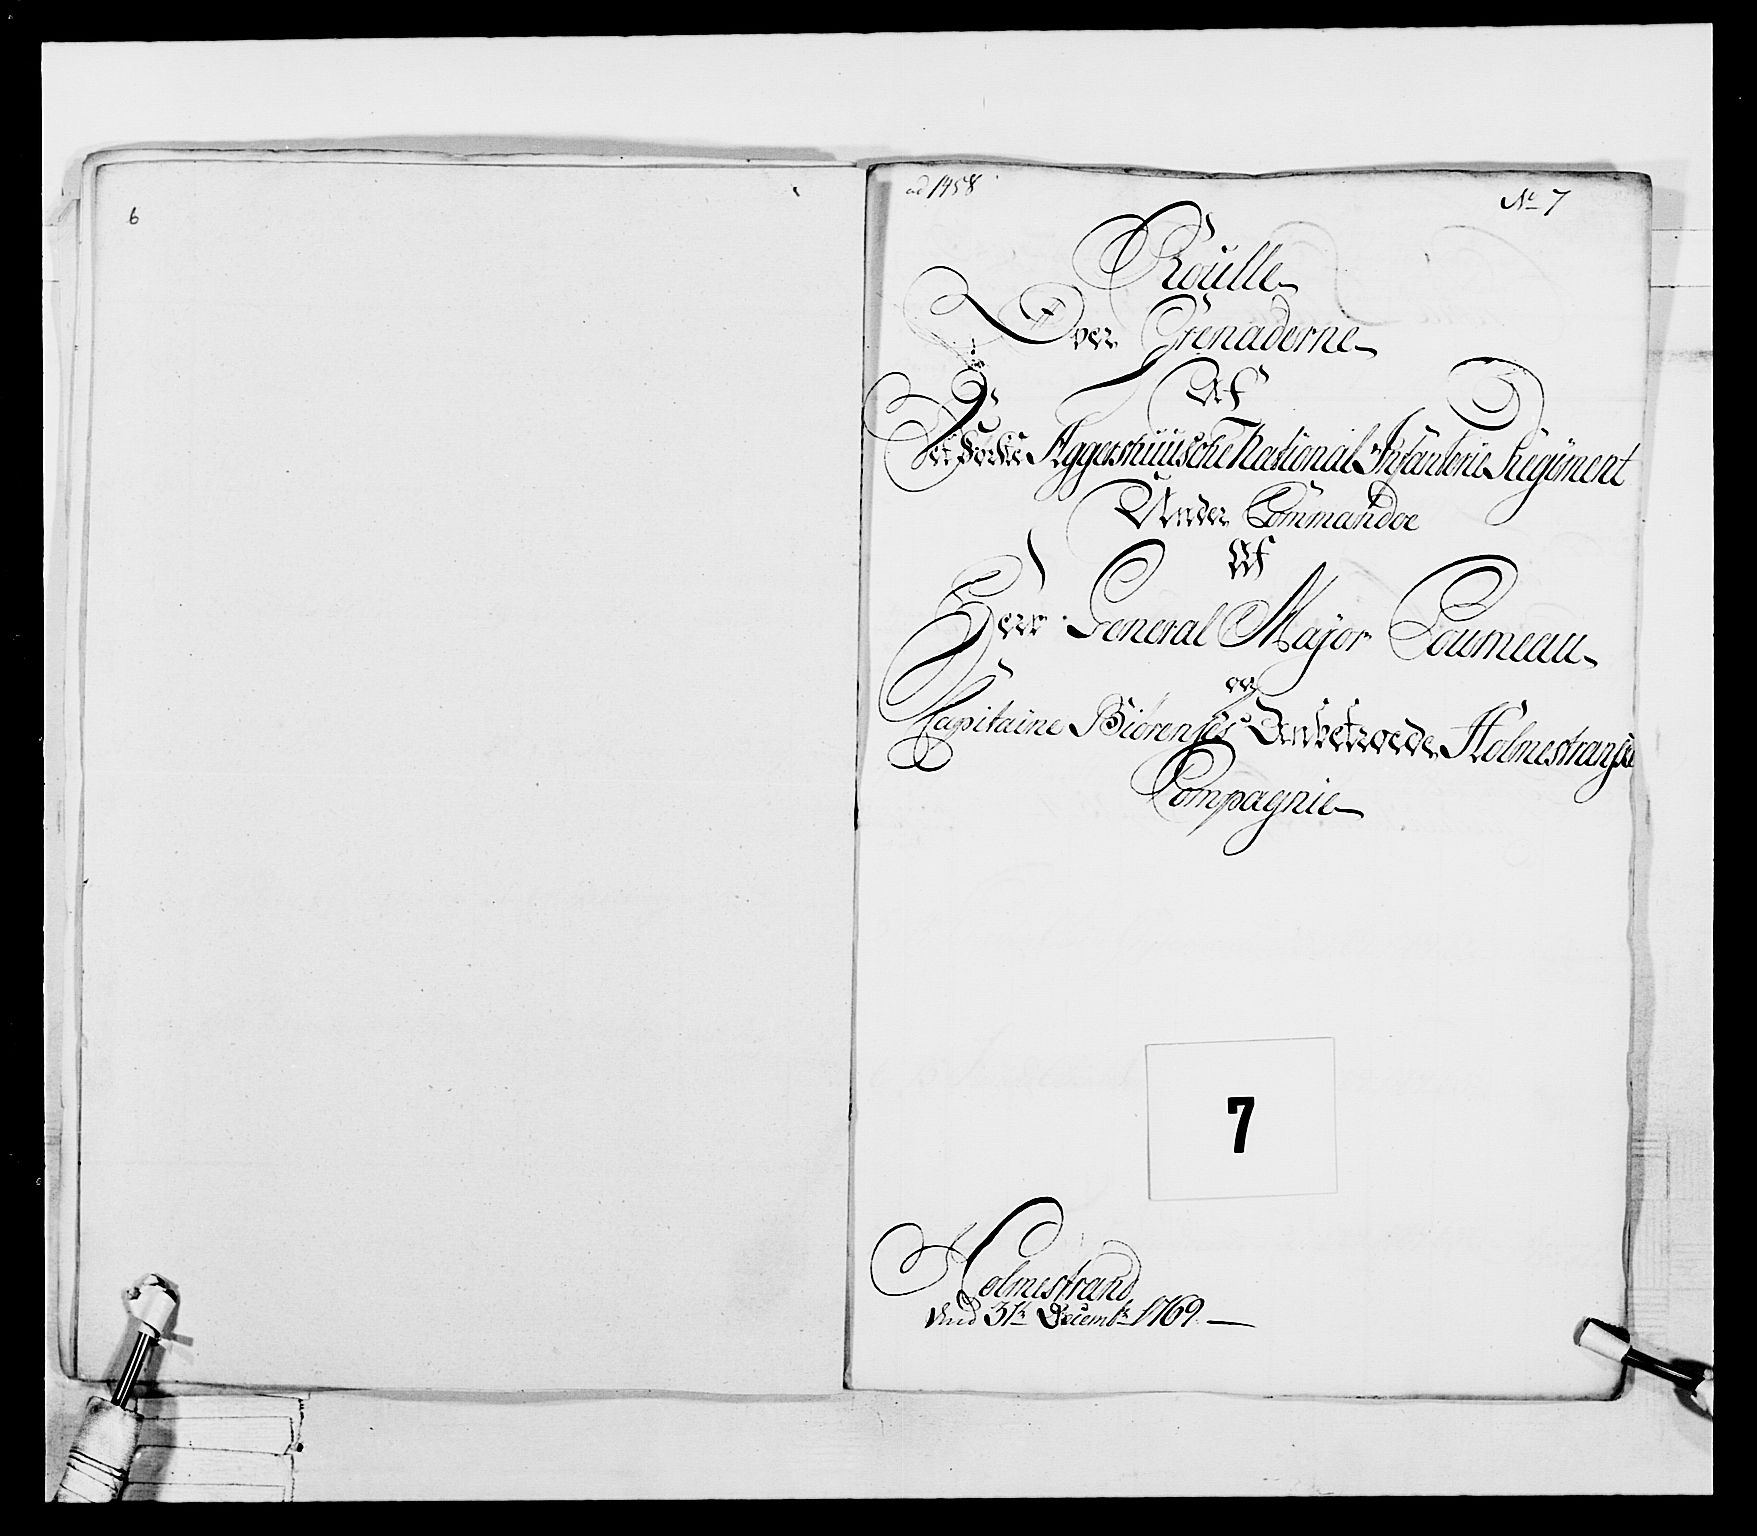 6
ad 1458
No 7
Roülle
Over Grenaderne
Af
Aggershuusche National Infanterie Regiment
Under Commandoe
Af
Herr General Major Coumeau
og
Capitaine Anbetroede Holmestranske
Compagnie
7
Holmestrand
dend 31te Decembr 1769.